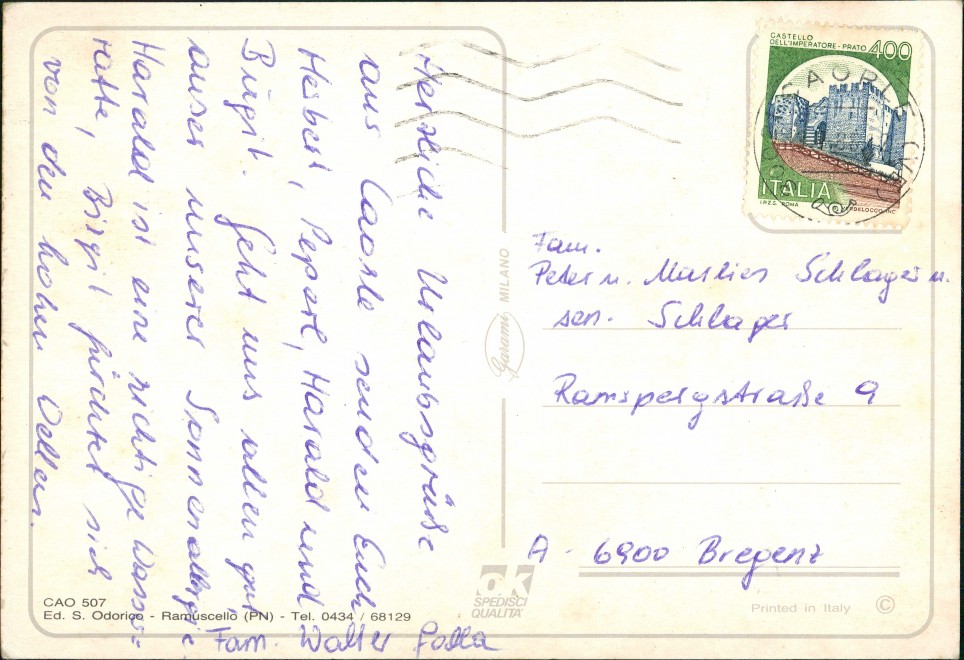 Herzliche Urlaubsgrüße
aus Caorle senden Euch
Herbert, Peperl, Harald und
Birgit. Geht uns allen gut
ausser unserer Sonnenallergie
Harald ist eine richtige Wasser=
ratte, Birgit fürchtet sich
von den hohen Wellen.
Fam. Walter
CAO 507
Ed. S. Odorico - Ramuscello (PN) - Tel. 0434 / 68129
Garami MILANO
OK
SPEDISCI
QUALITA'
CASTELLO
DELL'IMPERATORE - PRATO 400
ITALIA
I.P.Z.S. ROMA
CAORLE
Fam.
Peter u. Marlies Schlager u.
sen. Schlager
Ramspergstraße 9
A - 6900 Bregenz
Printed in Italy ©